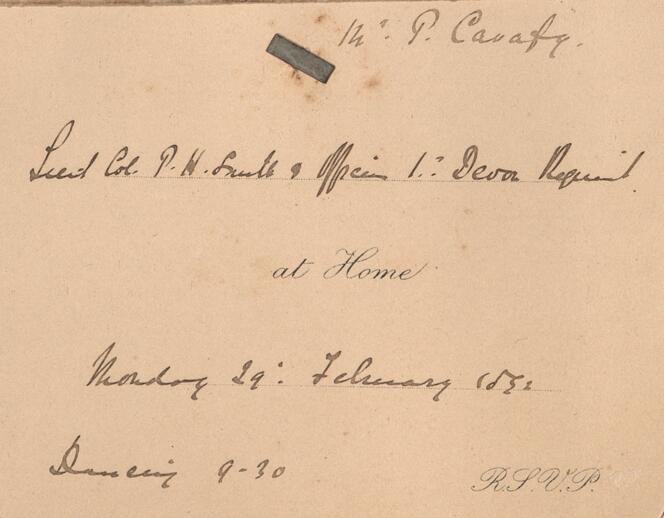 Mr. P. Cavafy.
Lieut Col. P. H. Smith & Officers 1st Devon Regiment
at Home
Monday 29th February 1892
Dancing 9-30
R.S.V.P.